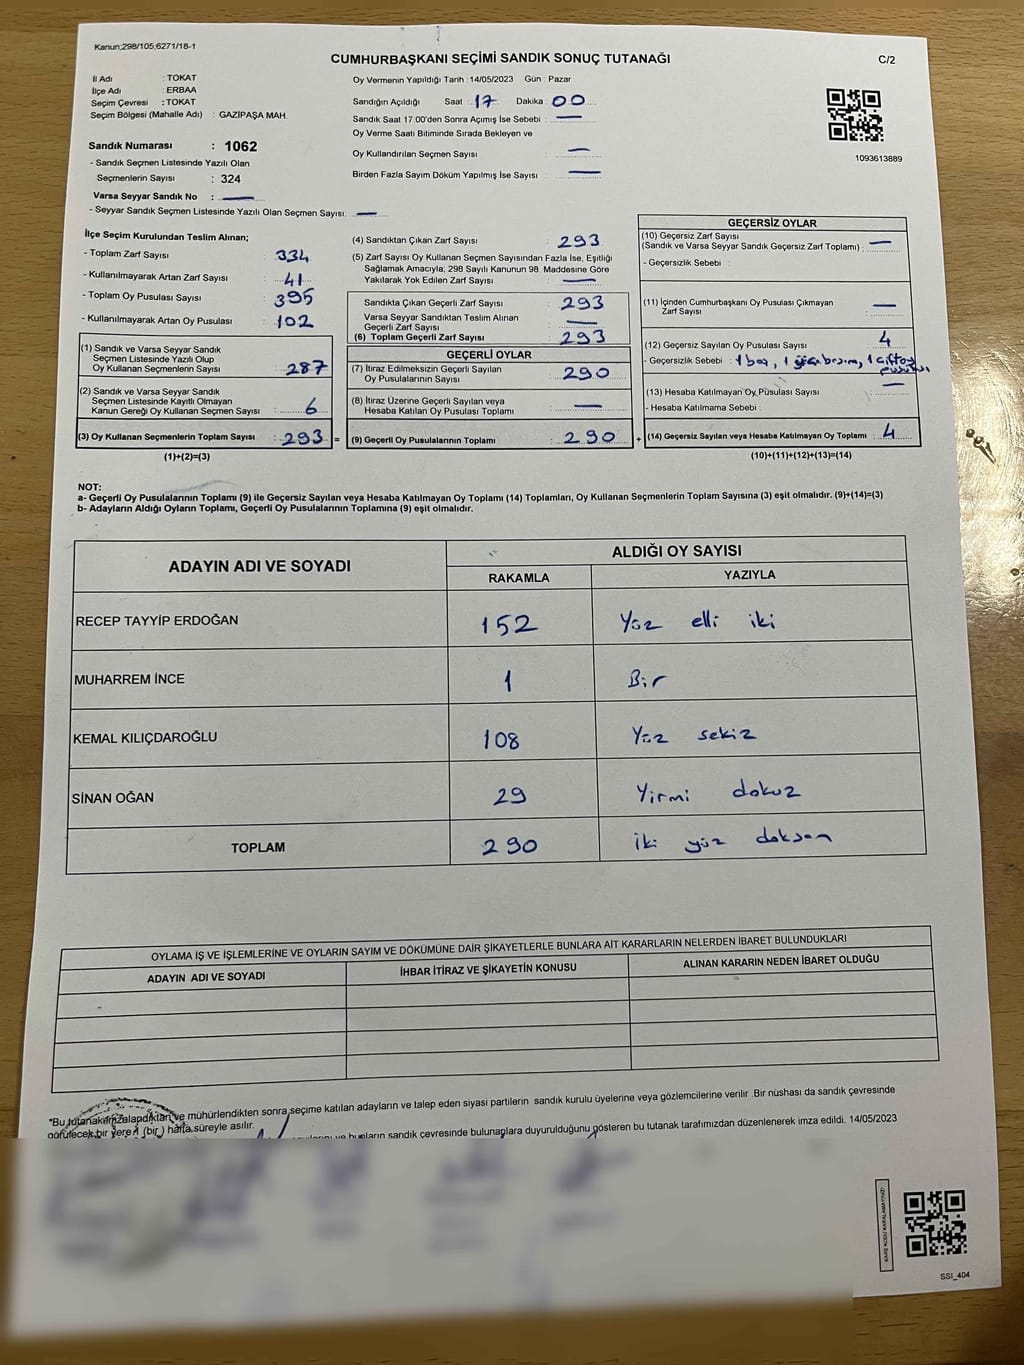 Kanun;298/105;6271/18-1
CUMHURBAŞKANI SEÇİMİ SANDIK SONUÇ TUTANAĞI
C/2
İl Adı : TOKAT
İlçe Adı : ERBAA
Seçim Çevresi : TOKAT
Seçim Bölgesi (Mahalle Adı) : GAZİPAŞA MAH.
Sandık Numarası : 1062
- Sandık Seçmen Listesinde Yazılı Olan
Seçmenlerin Sayısı : 324
Varsa Seyyar Sandık No : —
- Seyyar Sandık Seçmen Listesinde Yazılı Olan Seçmen Sayısı: —
Oy Vermenin Yapıldığı Tarih :14/05/2023 Gün : Pazar
Sandığın Açıldığı Saat : 17 Dakika : 00
Sandık Saat 17.00'den Sonra Açımış İse Sebebi : —
Oy Verme Saati Bitiminde Sırada Bekleyen ve
Oy Kullandırılan Seçmen Sayısı : —
Birden Fazla Sayım Döküm Yapılmış İse Sayısı : —
1093613889
İlçe Seçim Kurulundan Teslim Alınan;
- Toplam Zarf Sayısı : 334
- Kullanılmayarak Artan Zarf Sayısı : 41
- Toplam Oy Pusulası Sayısı : 395
- Kullanılmayarak Artan Oy Pusulası : 102
(1) Sandık ve Varsa Seyyar Sandık
Seçmen Listesinde Yazılı Olup
Oy Kullanan Seçmenlerin Sayısı : 287
(2) Sandık ve Varsa Seyyar Sandık
Seçmen Listesinde Kayıtlı Olmayan
Kanun Gereği Oy Kullanan Seçmen Sayısı : 6
(3) Oy Kullanan Seçmenlerin Toplam Sayısı : 293 =
(1)+(2)=(3)
(4) Sandıktan Çıkan Zarf Sayısı : 293
(5) Zarf Sayısı Oy Kullanan Seçmen Sayısından Fazla İse, Eşitliği
Sağlamak Amacıyla; 298 Sayılı Kanunun 98. Maddesine Göre
Yakılarak Yok Edilen Zarf Sayısı : —
Sandıkta Çıkan Geçerli Zarf Sayısı : 293
Varsa Seyyar Sandıktan Teslim Alınan
Geçerli Zarf Sayısı : —
(6) Toplam Geçerli Zarf Sayısı : 293
GEÇERLİ OYLAR
(7) İtiraz Edilmeksizin Geçerli Sayılan
Oy Pusulalarının Sayısı : 290
(8) İtiraz Üzerine Geçerli Sayılan veya
Hesaba Katılan Oy Pusulası Toplamı : —
(9) Geçerli Oy Pusulalarının Toplamı : 290 +
GEÇERSİZ OYLAR
(10) Geçersiz Zarf Sayısı
(Sandık ve Varsa Seyyar Sandık Geçersiz Zarf Toplamı) : —
- Geçersizlik Sebebi :
(11) İçinden Cumhurbaşkanı Oy Pusulası Çıkmayan
Zarf Sayısı : —
(12) Geçersiz Sayılan Oy Pusulası Sayısı : 4
- Geçersizlik Sebebi : 1 boş, 1
(13) Hesaba Katılmayan Oy Pusulası Sayısı : —
- Hesaba Katılmama Sebebi :
(14) Geçersiz Sayılan veya Hesaba Katılmayan Oy Toplamı : 4
(10)+(11)+(12)+(13)=(14)
NOT:
a- Geçerli Oy Pusulalarının Toplamı (9) ile Geçersiz Sayılan veya Hesaba Katılmayan Oy Toplamı (14) Toplamları, Oy Kullanan Seçmenlerin Toplam Sayısına (3) eşit olmalıdır. (9)+(14)=(3)
b- Adayların Aldığı Oyların Toplamı, Geçerli Oy Pusulalarının Toplamına (9) eşit olmalıdır.
ADAYIN ADI VE SOYADI
ALDIĞI OY SAYISI
RAKAMLA YAZIYLA
RECEP TAYYİP ERDOĞAN 152 Yüz elli iki
MUHARREM İNCE 1 Bir
KEMAL KILIÇDAROĞLU 108 Yüz sekiz
SİNAN OĞAN 29 Yirmi dokuz
TOPLAM 290 iki yüz doksan
OYLAMA İŞ VE İŞLEMLERİNE VE OYLARIN SAYIM VE DÖKÜMÜNE DAİR ŞİKAYETLERLE BUNLARA AİT KARARLARIN NELERDEN İBARET BULUNDUKLARI
ADAYIN ADI VE SOYADI İHBAR İTİRAZ VE ŞİKAYETİN KONUSU ALINAN KARARIN NEDEN İBARET OLDUĞU
*Bu tutanak imzalandıktan ve mühürlendikten sonra seçime katılan adayların ve talep eden siyasi partilerin sandık kurulu üyelerine veya gözlemcilerine verilir. Bir nüshası da sandık çevresinde
görülecek bir yere (bir) hafta süreyle asılır.
ve bunların sandık çevresinde bulunanlara duyurulduğunu gösteren bu tutanak tarafımızdan düzenlenerek imza edildi. 14/05/2023
KARE KODU KARALAMAYINIZ!
SSI_404